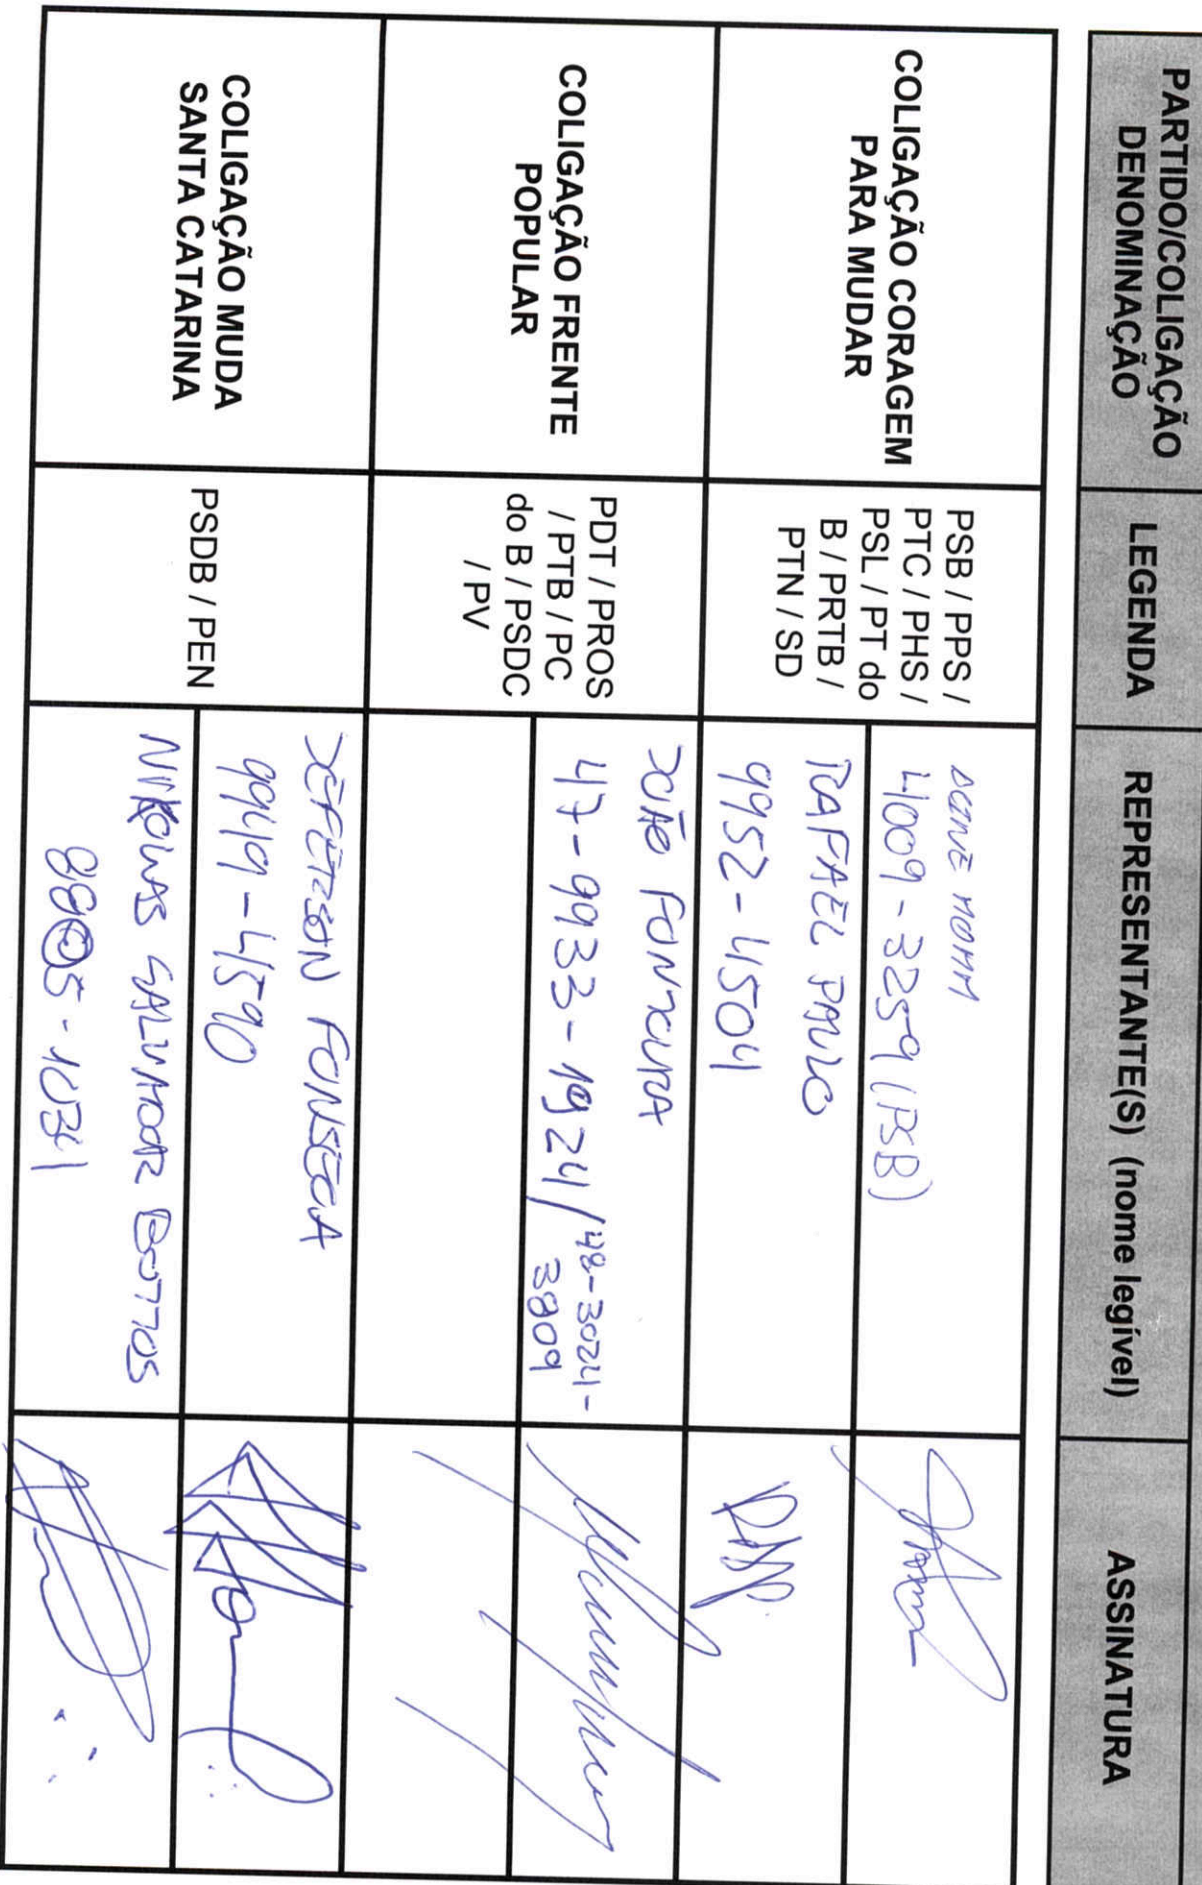 PARTIDO/COLIGAÇÃO
DENOMINAÇÃO
LEGENDA
REPRESENTANTE(S) (nome legível)
ASSINATURA
COLIGAÇÃO CORAGEM
PARA MUDAR
PSB / PPS /
PTC / PHS /
PSL / PT do
B / PRTB /
PTN / SD
MOMM
4009-3259 (PSB)
RAFAEL PAULO
9952-4504
COLIGAÇÃO FRENTE
POPULAR
PDT / PROS
/ PTB / PC
do B / PSDC
/ PV
JOÃO FONTOURA
47-9933-1924/48-3024-
3809
COLIGAÇÃO MUDA
SANTA CATARINA
PSDB / PEN
JEFERSON FONSECA
9949-4590
NIKOLAS SALVADOR BOTTOS
8805-1034